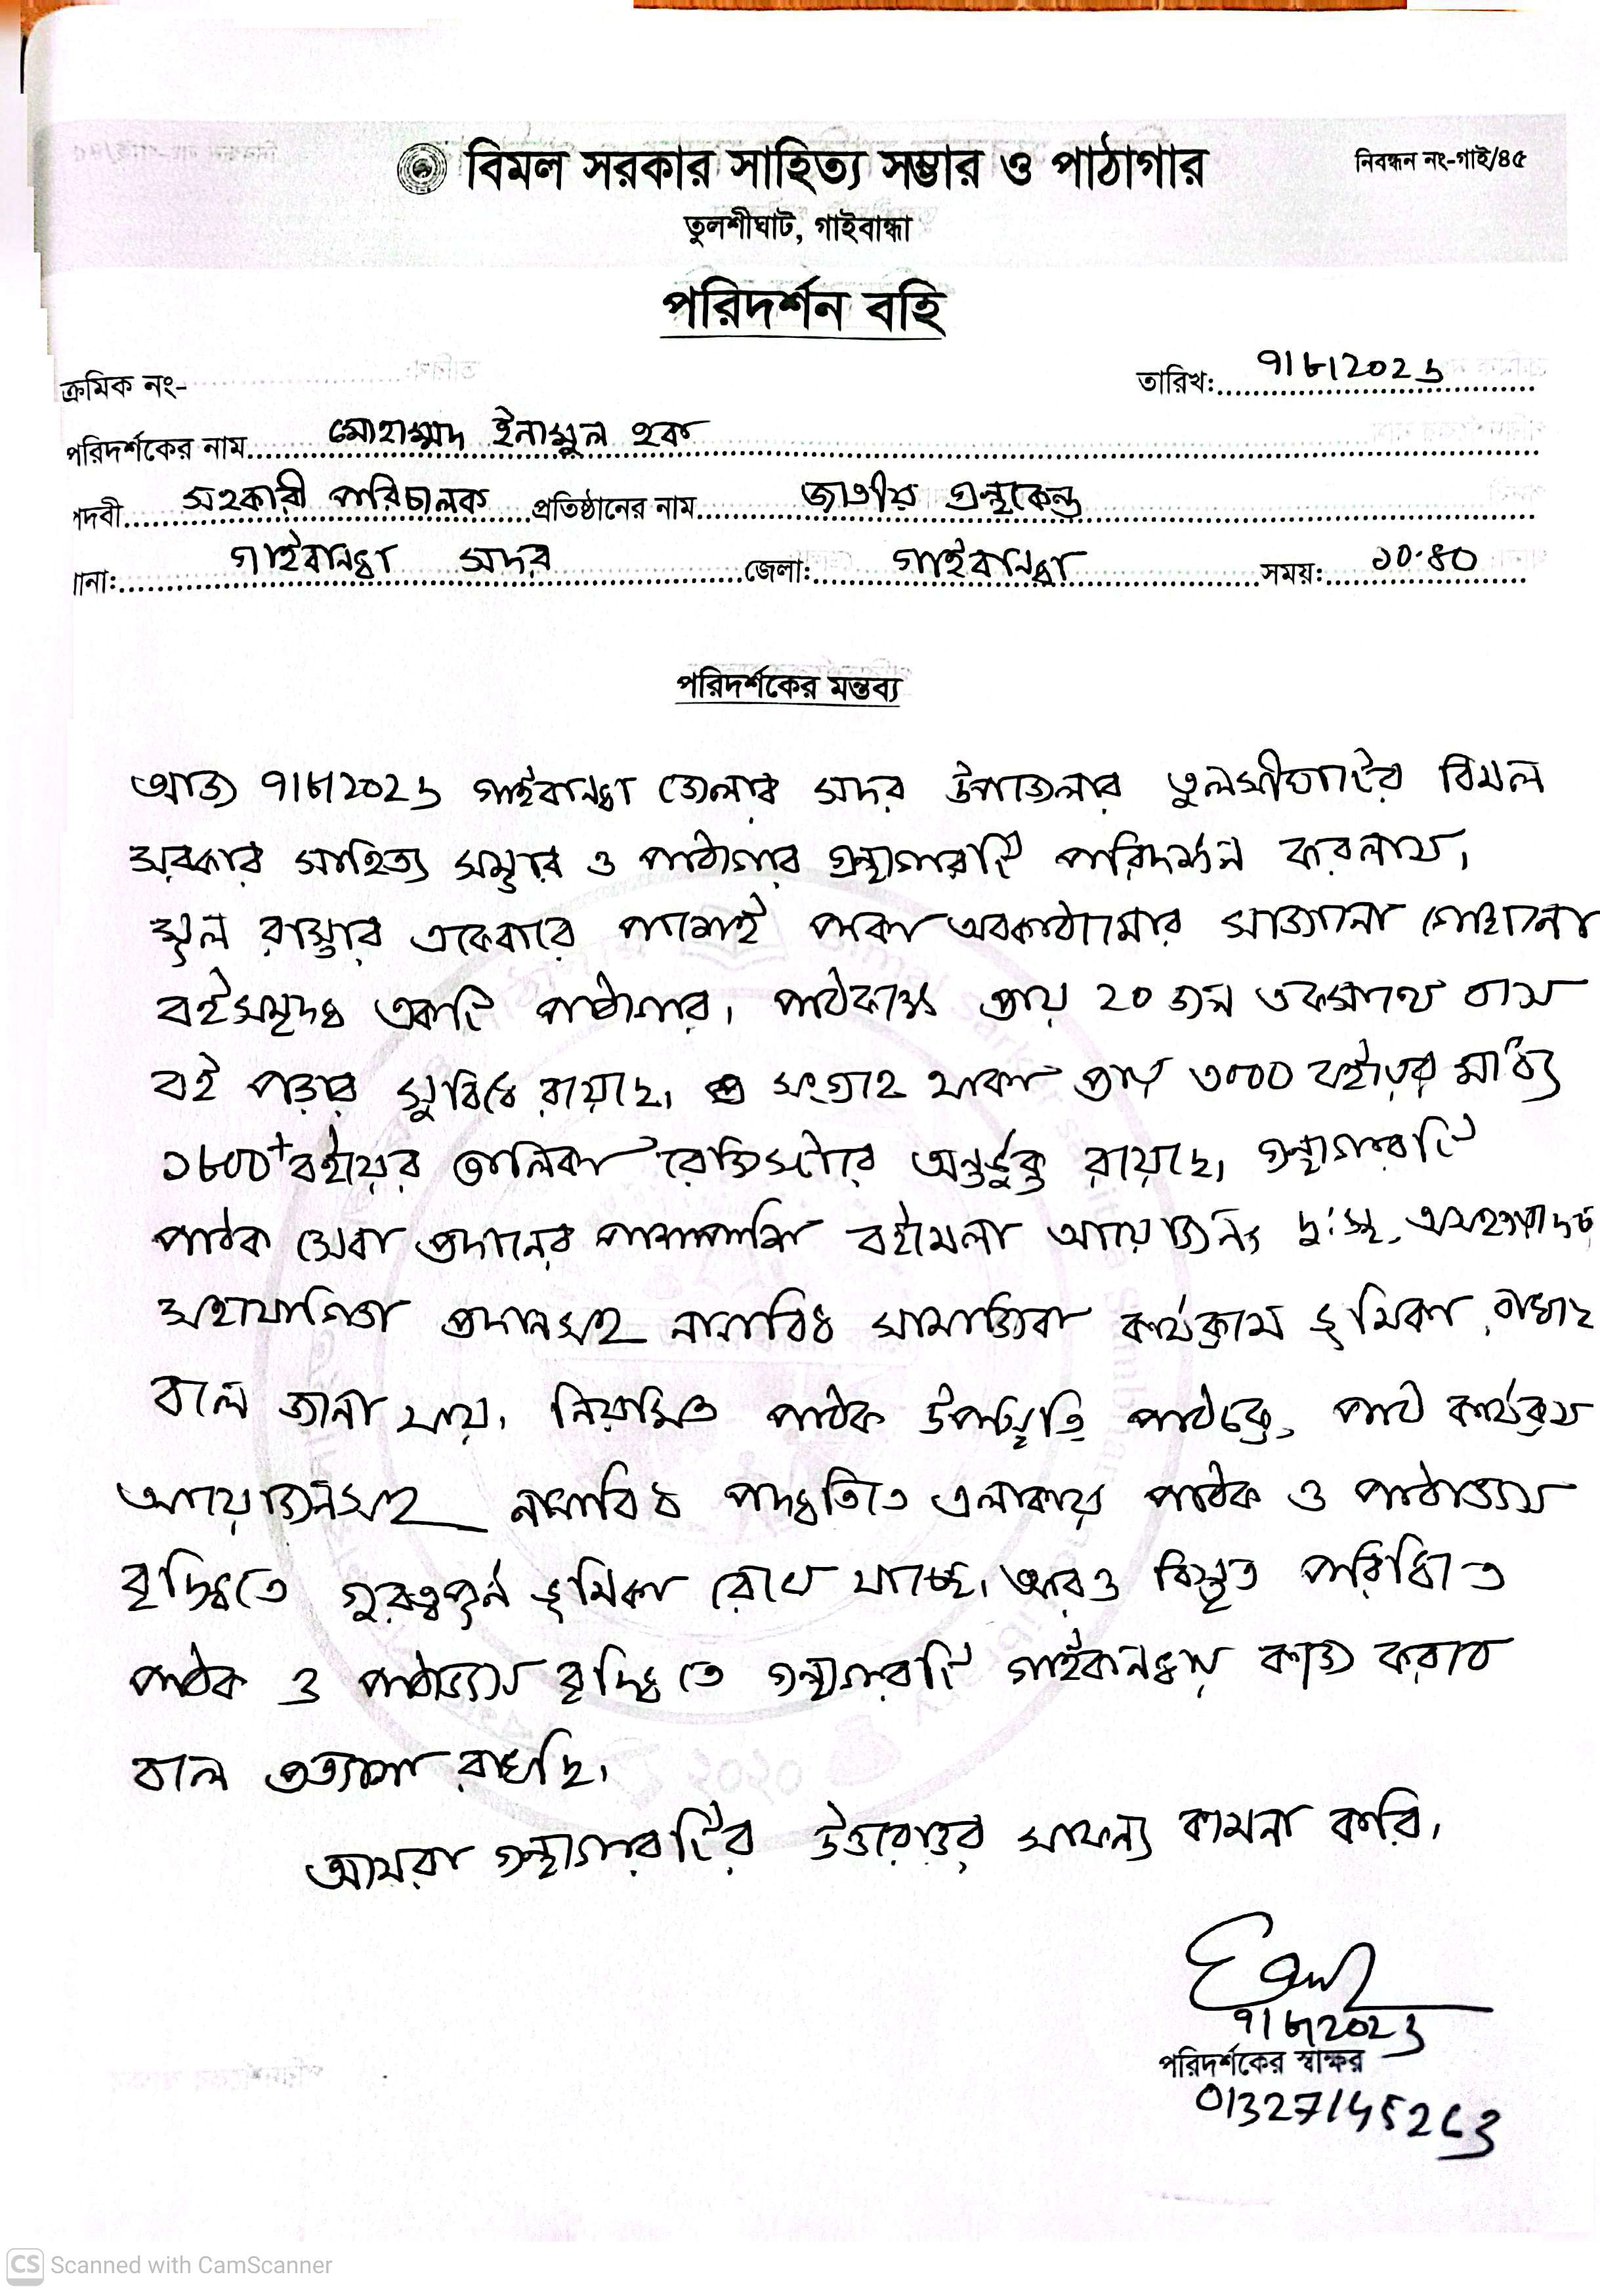 বিমল সরকার সাহিত্য সম্ভার ও পাঠাগার
নিবন্ধন নং-গাই/৪৫
তুলশীঘাট, গাইবান্ধা
পরিদর্শন বহি
ক্রমিক নং-
তারিখ: ৭/৮/২০২১
পরিদর্শকের নাম মোহাম্মদ ইনামুল হক
পদবী সহকারী পরিচালক প্রতিষ্ঠানের নাম জাতীয় গ্রন্থকেন্দ্র
থানা: গাইবান্ধা সদর জেলা: গাইবান্ধা সময়: ১০.৪০
পরিদর্শকের মন্তব্য
আজ ৭/৮/২০২১ গাইবান্ধা জেলার সদর উপজেলার তুলসীঘাটের বিমল
সরকার সাহিত্য সম্ভার ও পাঠাগার গ্রন্থাগারটি পরিদর্শন করলাম।
মূল রাস্তার একেবারে পাশেই পাকা অবকাঠামোর সাজানো গোছানো
বইসমৃদ্ধ একটি পাঠাগার। পাঠকক্ষে প্রায় ২০ জন একসাথে বসে
বই পড়ার সুবিধে রয়েছে। সংগ্রহে থাকা প্রায় ৩০০০ বইয়ের মধ্যে
১৮০০+ বইয়ের তালিকা রেজিস্টারে অন্তর্ভুক্ত রয়েছে। গ্রন্থাগারটি
পাঠক সেবা প্রদানের পাশাপাশি বইমেলা আয়োজন, দু:স্থ, অসহায়দের
সহযোগিতা প্রদানসহ নানাবিধ সামাজিক কার্যক্রমে ভূমিকা রাখছে
বলে জানা যায়। নিয়মিত পাঠক উপস্থিতি, পাঠচক্র, পাঠ কার্যক্রম
আয়োজনসহ নানাবিধ পদ্ধতিতে এলাকায় পাঠক ও পাঠাভ্যাস
বৃদ্ধিতে গুরুত্বপূর্ণ ভূমিকা রেখে যাচ্ছে। আরও বিস্তৃত পরিধিতে
পাঠক ও পাঠাভ্যাস বৃদ্ধিতে গ্রন্থাগারটি গাইবান্ধায় কাজ করবে
বলে প্রত্যাশা রাখছি।
আমরা গ্রন্থাগারটির উত্তরোত্তর সাফল্য কামনা করি।
৭/৮/২০২১
পরিদর্শকের স্বাক্ষর
01327145263
CS Scanned with CamScanner